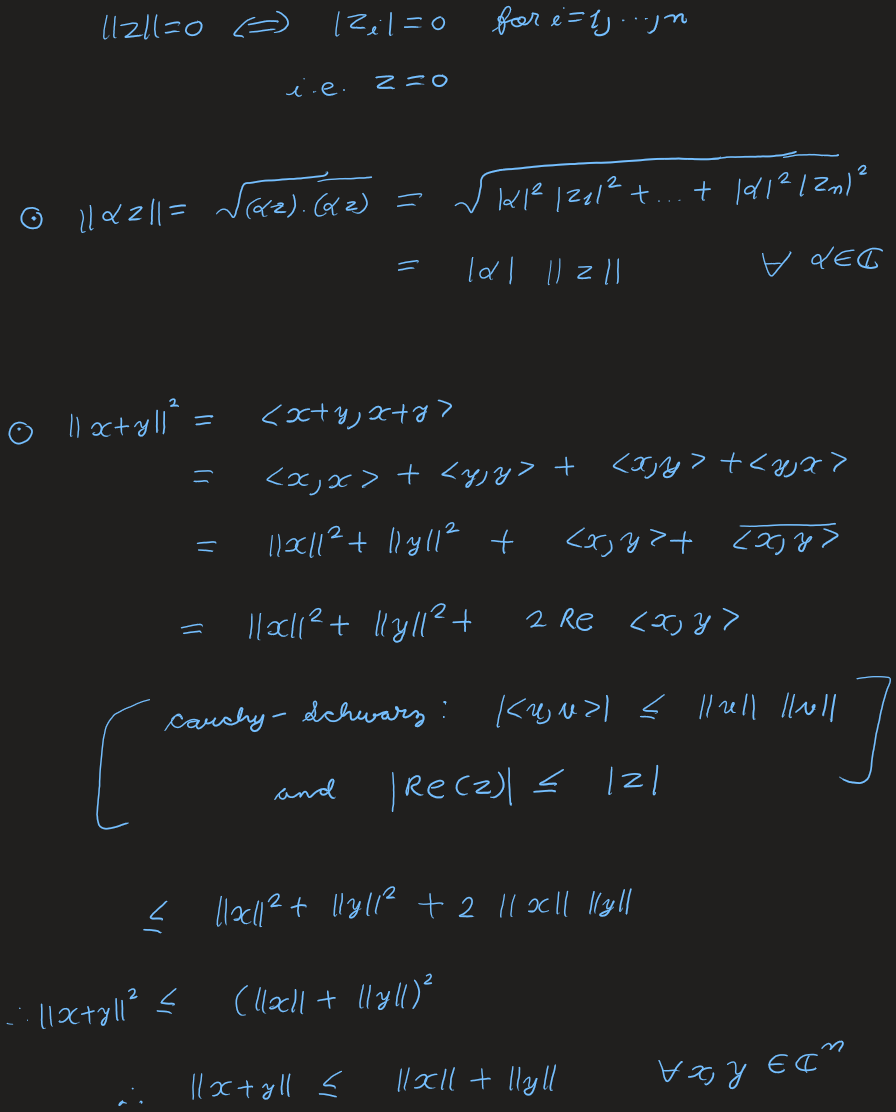 ||z||=0 ⟺ |z_i|=0 for i=1, ..., n
i.e. z=0
⊙ ||αz|| = √((αz)·\overline{(αz)}) = √(|α|²|z₁|² + ... + |α|²|zₙ|²)
= |α| ||z|| ∀ α∈ℂ
⊙ ||x+y||² = <x+y, x+y>
= <x,x> + <y,y> + <x,y> + <y,x>
= ||x||² + ||y||² + <x,y> + \overline{<x,y>}
= ||x||² + ||y||² + 2 Re <x,y>
[ Cauchy-Schwarz: |<u,v>| ≤ ||u|| ||v|| ]
and |Re(z)| ≤ |z|
≤ ||x||² + ||y||² + 2 ||x|| ||y||
∴ ||x+y||² ≤ (||x|| + ||y||)²
∴ ||x+y|| ≤ ||x|| + ||y|| ∀ x, y ∈ ℂⁿ